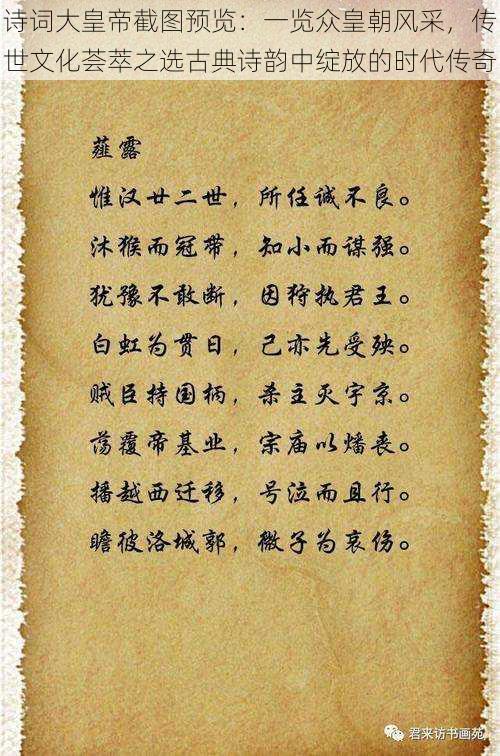 诗词大皇帝截图预览：一览众皇朝风采，传
世文化荟萃之选古典诗韵中绽放的时代传奇
薤露
惟汉廿二世，所任诚不良。
沐猴而冠带，知小而谋强。
犹豫不敢断，因狩执君王。
白虹为贯日，己亦先受殃。
贼臣持国柄，杀主灭宇京。
荡覆帝基业，宗庙以燔丧。
播越西迁移，号泣而且行。
瞻彼洛城郭，微子为哀伤。
君来访书画苑